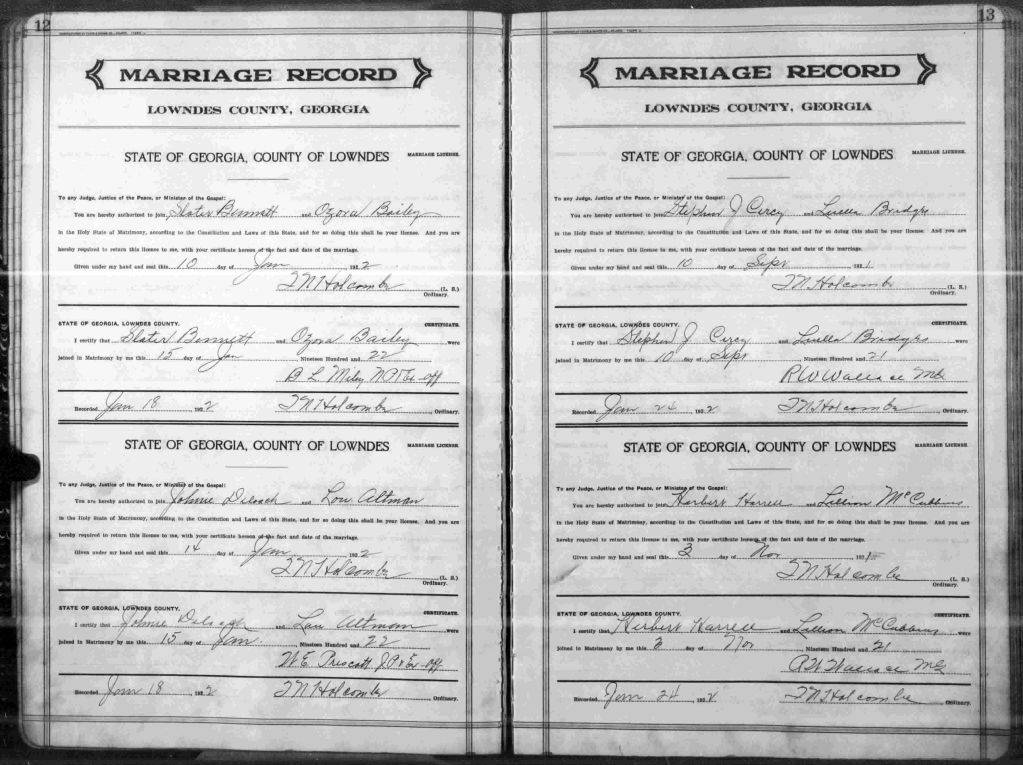 12
MARRIAGE RECORD
LOWNDES COUNTY, GEORGIA
STATE OF GEORGIA, COUNTY OF LOWNDES MARRIAGE LICENSE.
To any Judge, Justice of the Peace, or Minister of the Gospel:
You are hereby authorized to join Slater Bennett and Ozora Bailey
in the Holy State of Matrimony, according to the Constitution and Laws of this State, and for so doing this shall be your license. And you are
hereby required to return this license to me, with your certificate hereon of the fact and date of the marriage.
Given under my hand and seal this 10 day of Jan 1922
T N Holcombe (L. S.)
Ordinary.
STATE OF GEORGIA, LOWNDES COUNTY. CERTIFICATE.
I certify that Slater Bennett and Ozora Bailey were
joined in Matrimony by me this 15 day of Jan Nineteen Hundred and 22
B L Miley N P & Ex-off
Recorded Jan 18 1922 T N Holcombe, Ordinary.
STATE OF GEORGIA, COUNTY OF LOWNDES MARRIAGE LICENSE.
To any Judge, Justice of the Peace, or Minister of the Gospel:
You are hereby authorized to join Johnie Deloach and Lou Altman
in the Holy State of Matrimony, according to the Constitution and Laws of this State, and for so doing this shall be your license. And you are
hereby required to return this license to me, with your certificate hereon of the fact and date of the marriage.
Given under my hand and seal this 14 day of Jan 1922
T N Holcombe (L. S.)
Ordinary.
STATE OF GEORGIA, LOWNDES COUNTY. CERTIFICATE.
I certify that Johnie Deloach and Lou Altman were
joined in Matrimony by me this 15 day of Jan. Nineteen Hundred and 22
W. E. Priscott J. P & Ex-off
Recorded Jan 18 1922 T N Holcombe Ordinary.
13
MARRIAGE RECORD
LOWNDES COUNTY, GEORGIA
STATE OF GEORGIA, COUNTY OF LOWNDES MARRIAGE LICENSE.
To any Judge, Justice of the Peace, or Minister of the Gospel:
You are hereby authorized to join Stephen J Circy and Luella Bridges
in the Holy State of Matrimony, according to the Constitution and Laws of this State, and for so doing this shall be your license. And you are
hereby required to return this license to me, with your certificate hereon of the fact and date of the marriage.
Given under my hand and seal this 10 day of Sept 1921
T N Holcombe (L. S.)
Ordinary.
STATE OF GEORGIA, LOWNDES COUNTY. CERTIFICATE.
I certify that Stephen J Circy and Luella Bridges were
joined in Matrimony by me this 10 day of Sept Nineteen Hundred and 21
R W Wallace MG
Recorded Jan 24 1922 T N Holcombe, Ordinary.
STATE OF GEORGIA, COUNTY OF LOWNDES MARRIAGE LICENSE.
To any Judge, Justice of the Peace, or Minister of the Gospel:
You are hereby authorized to join Herbert Harrell and Lillian McCubbins
in the Holy State of Matrimony, according to the Constitution and Laws of this State, and for so doing this shall be your license. And you are
hereby required to return this license to me, with your certificate hereon of the fact and date of the marriage.
Given under my hand and seal this 3 day of Nov 1921
T N Holcombe (L. S.)
Ordinary.
STATE OF GEORGIA, LOWNDES COUNTY. CERTIFICATE.
I certify that Herbert Harrell and Lillian McCubbins were
joined in Matrimony by me this 3 day of Nov Nineteen Hundred and 21
R W Wallace MG
Recorded Jan 24 1922 T N Holcombe Ordinary.